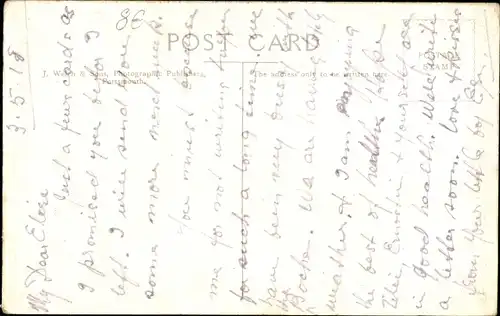 86
POST CARD
J. W. & Sons, Photographic Publishers,
Portsmouth.
The address only to be written here
3.5.18
My Dear Elsie
Just a few cards as
I promised you before I
left. I will send you
some more next week.
You must excuse
me for not writing
for such a long time.
been very busy
We are having
weather, & I am enjoying
the best of health
& yourself are
in good health. Well, write
a letter soon. Love & kisses
from your little boy